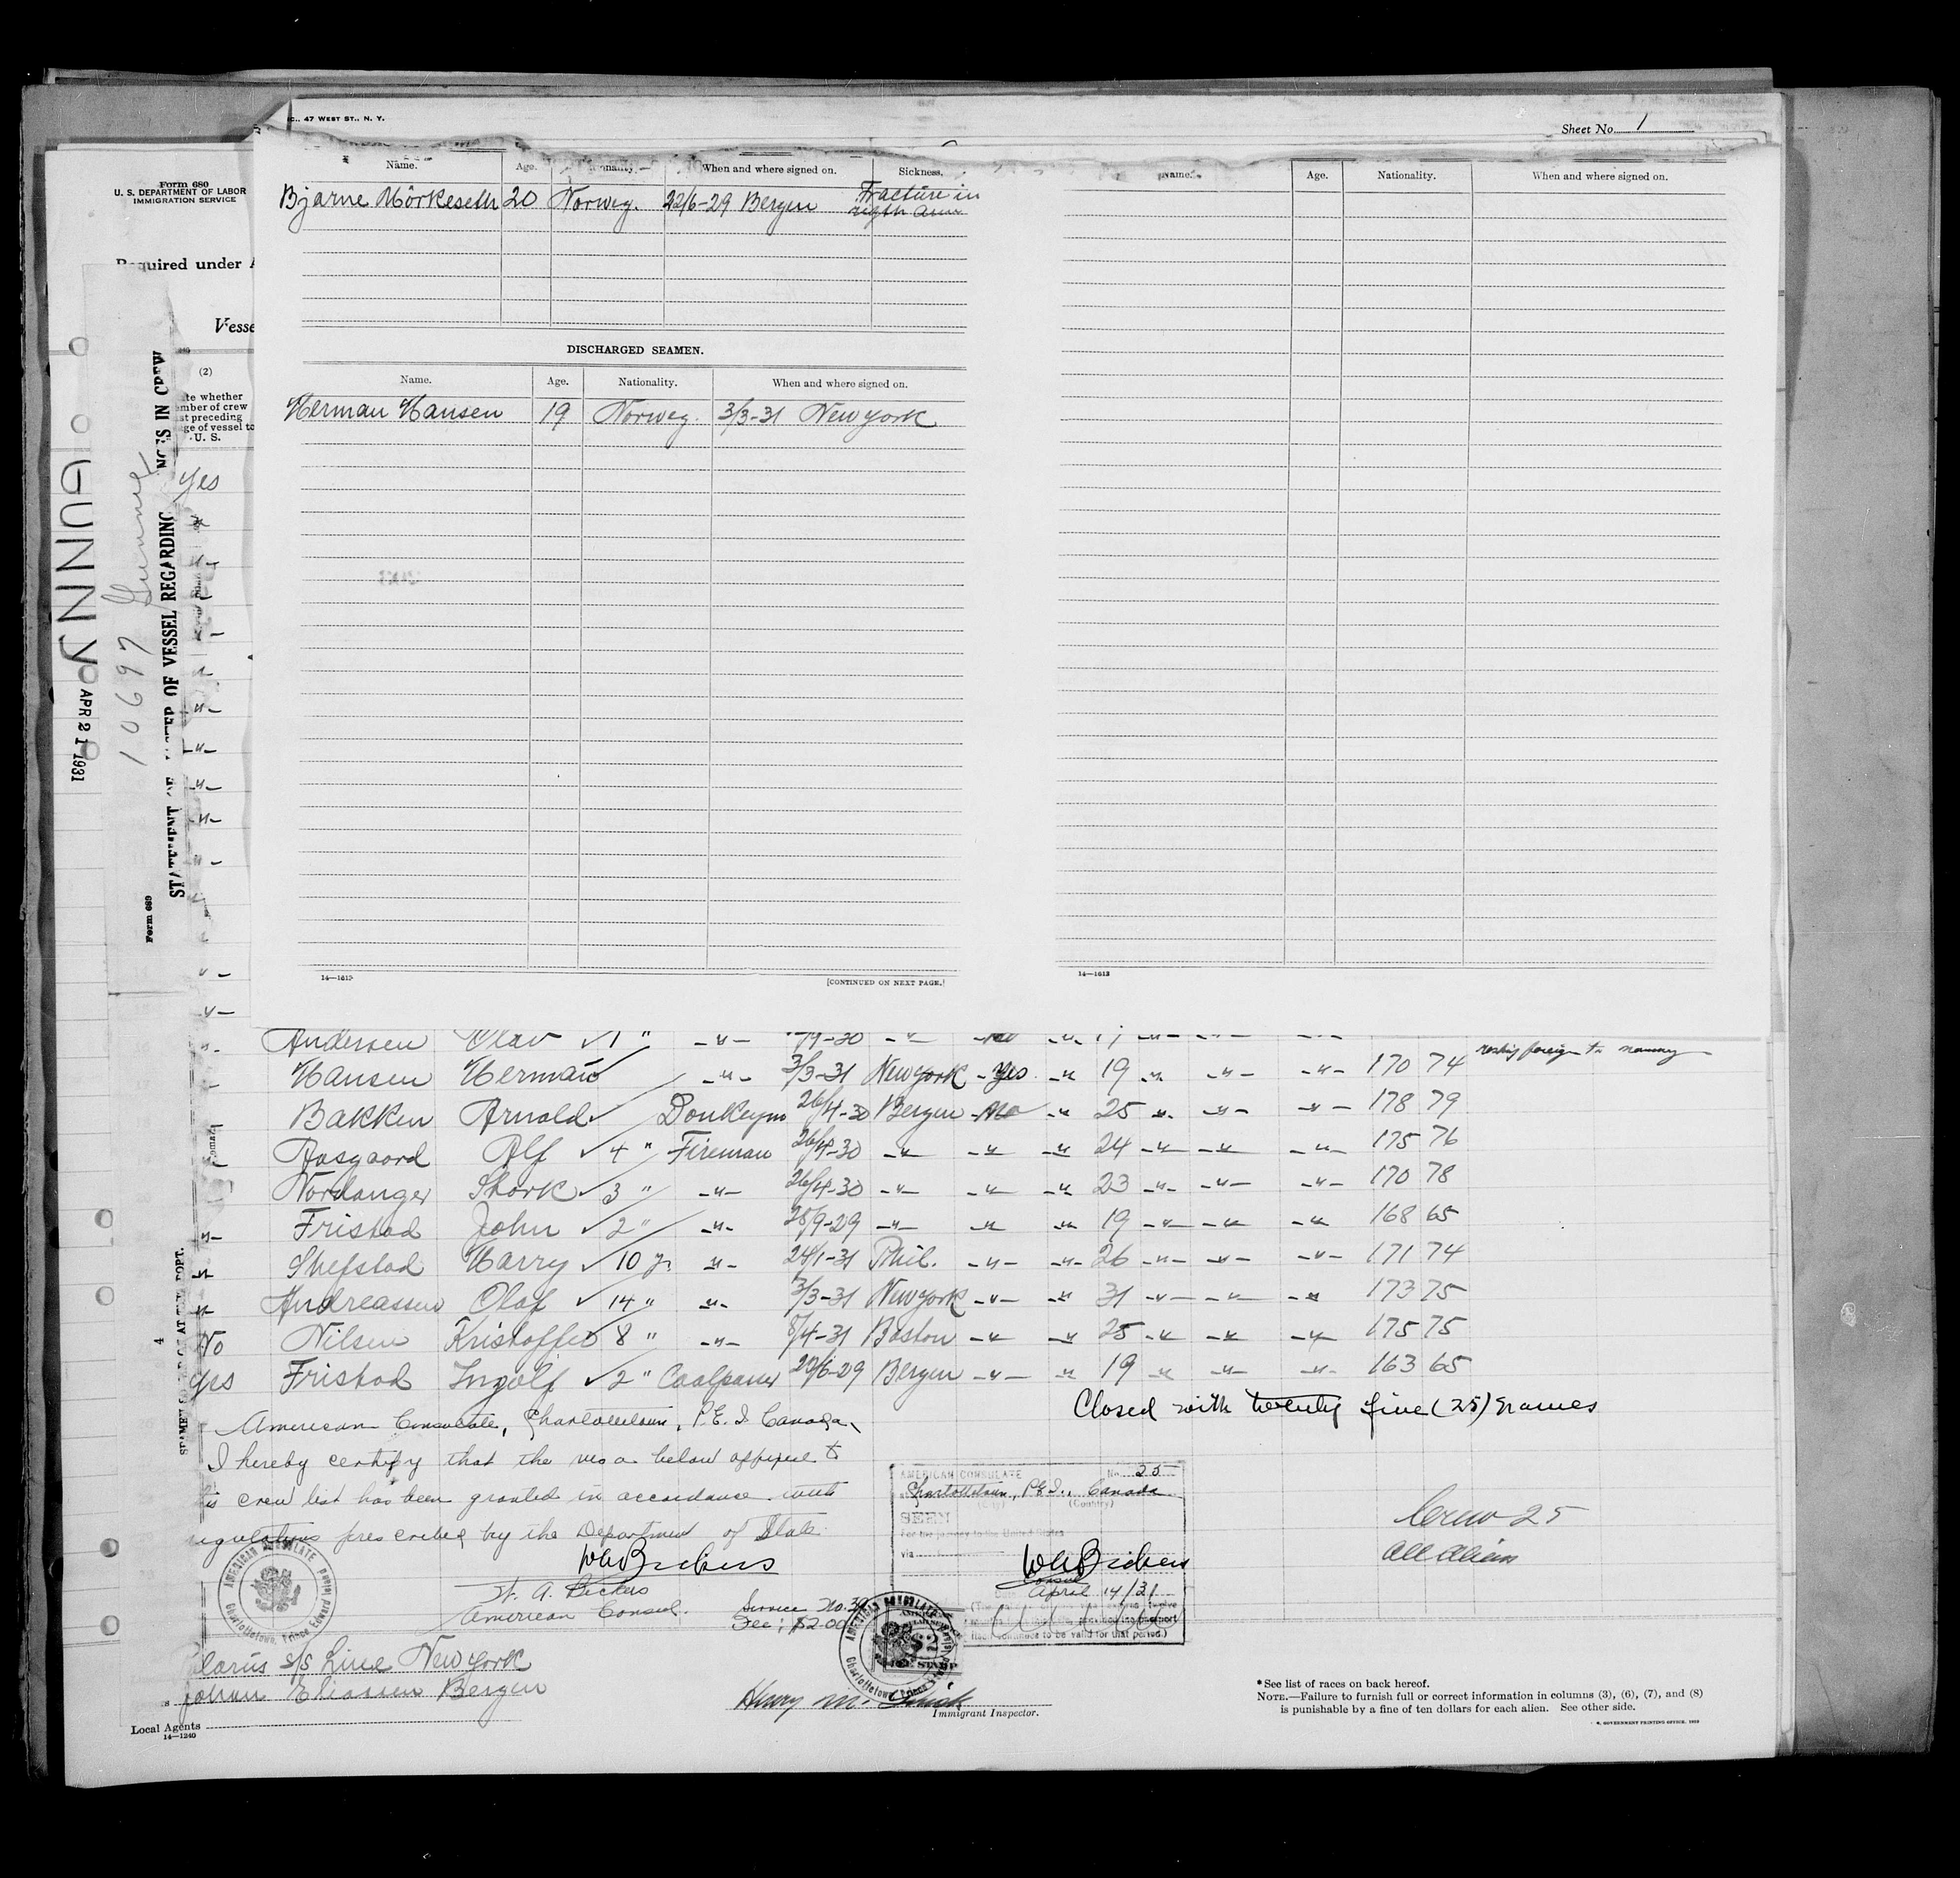 C., 47 WEST ST., N. Y.
Sheet No. 1
Form 680
U. S. DEPARTMENT OF LABOR
IMMIGRATION SERVICE
Required under
Vesse
(2)
te whether
mber of crew
st preceding
ge of vessel to
U. S.
Yes
GUNNY
APR 21 1931
10697 Gunny
Form 689
STATEMENT OF MASTER OF VESSEL REGARDING
NGES IN CREW
Name. Age. Nationality. When and where signed on. Sickness.
Bjarne Mörkeseth 20 Norweg. 22/6-29 Bergen Fracture in
rigth arm
DISCHARGED SEAMEN.
Name. Age. Nationality. When and where signed on.
Herman Hansen 19 Norweg. 3/3-31 New york
14—1613
[CONTINUED ON NEXT PAGE.]
Name. Age. Nationality. When and where signed on.
14—1613
Andersen Olav 1 " -"- 9-30 -"- No -"-
Hansen Herman -"- 3/3-31 New york - Yes -"- 19 -"- -"- -"- 170 74
Bakken Arnold Donkeym 26/4-30 Bergen - No -"- 25 -"- -"- -"- 178 79
Aasgaard Alf 4 " Fireman 26/4-30 -"- -"- -"- 24 -"- -"- -"- 175 76
Nordanger Skork 3 " -"- 26/4-30 -"- -"- -"- 23 -"- -"- -"- 170 78
Fristad John 2 " -"- 28/9-29 -"- -"- -"- 19 -"- -"- -"- 168 65
Shefstad Harry 10 y. -"- 24/1-31 Phil. -"- -"- 26 -"- -"- -"- 171 74
Andreassen Olaf 14 " -"- 3/3-31 New york -"- -"- 31 -"- -"- -"- 173 75
No Nilsen Kristoffer 8 " -"- 8/4-31 Boston -"- -"- 25 -"- -"- -"- 175 75
Yes Fristad Ingolf 2 " Coalpasser 22/6-29 Bergen -"- -"- 19 -"- -"- -"- 163 65
Closed with twenty five (25) names
American Consulate, Charlottetown, P.E.I. Canada
I hereby certify that the visa below affixed to
this crew list has been granted in accordance with
regulations prescribed by the Department of State.
W A Bickers
W. A. Bickers
American Consul.
Service No. 39
Fee: $2.00
AMERICAN CONSULATE No. 25
Charlottetown, P.E.I., Canada
(City) (Country)
SEEN
For the journey to the United States
via
W A Bickers
Consul
April 14/31
Crew 25
all aliens
AMERICAN CONSULATE
Charlottetown, Prince Edward Island
AMERICAN CONSULATE
Charlottetown, Prince Edward Island
s/s Line New york
Johan Eliassen Bergen
Local Agents
14—1240
Henry M.
Immigrant Inspector.
* See list of races on back hereof.
NOTE.—Failure to furnish full or correct information in columns (3), (6), (7), and (8)
is punishable by a fine of ten dollars for each alien. See other side.